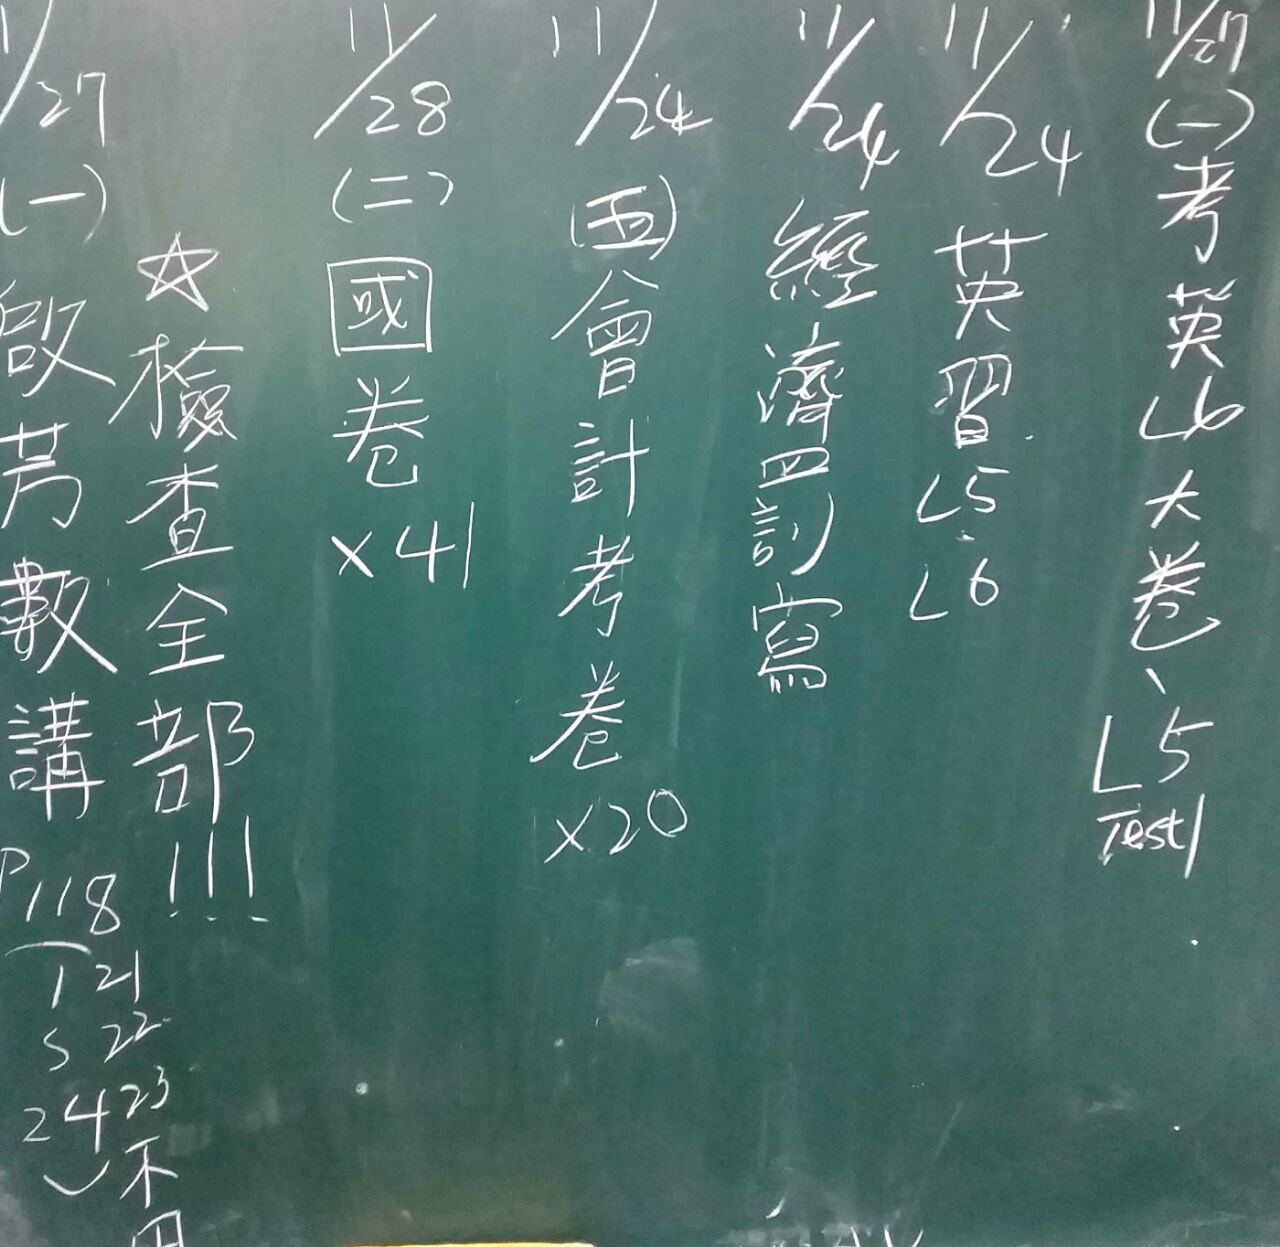 11/27(一)考英L6大卷、L5 Test1
11/24英習L5、L6
11/24經濟四訂寫
11/24(五)會計考卷x20
11/28(二)國卷x41
☆檢查全部!!!
11/27(一)啟芳數講P118
1 21
5 22
24 23
不用